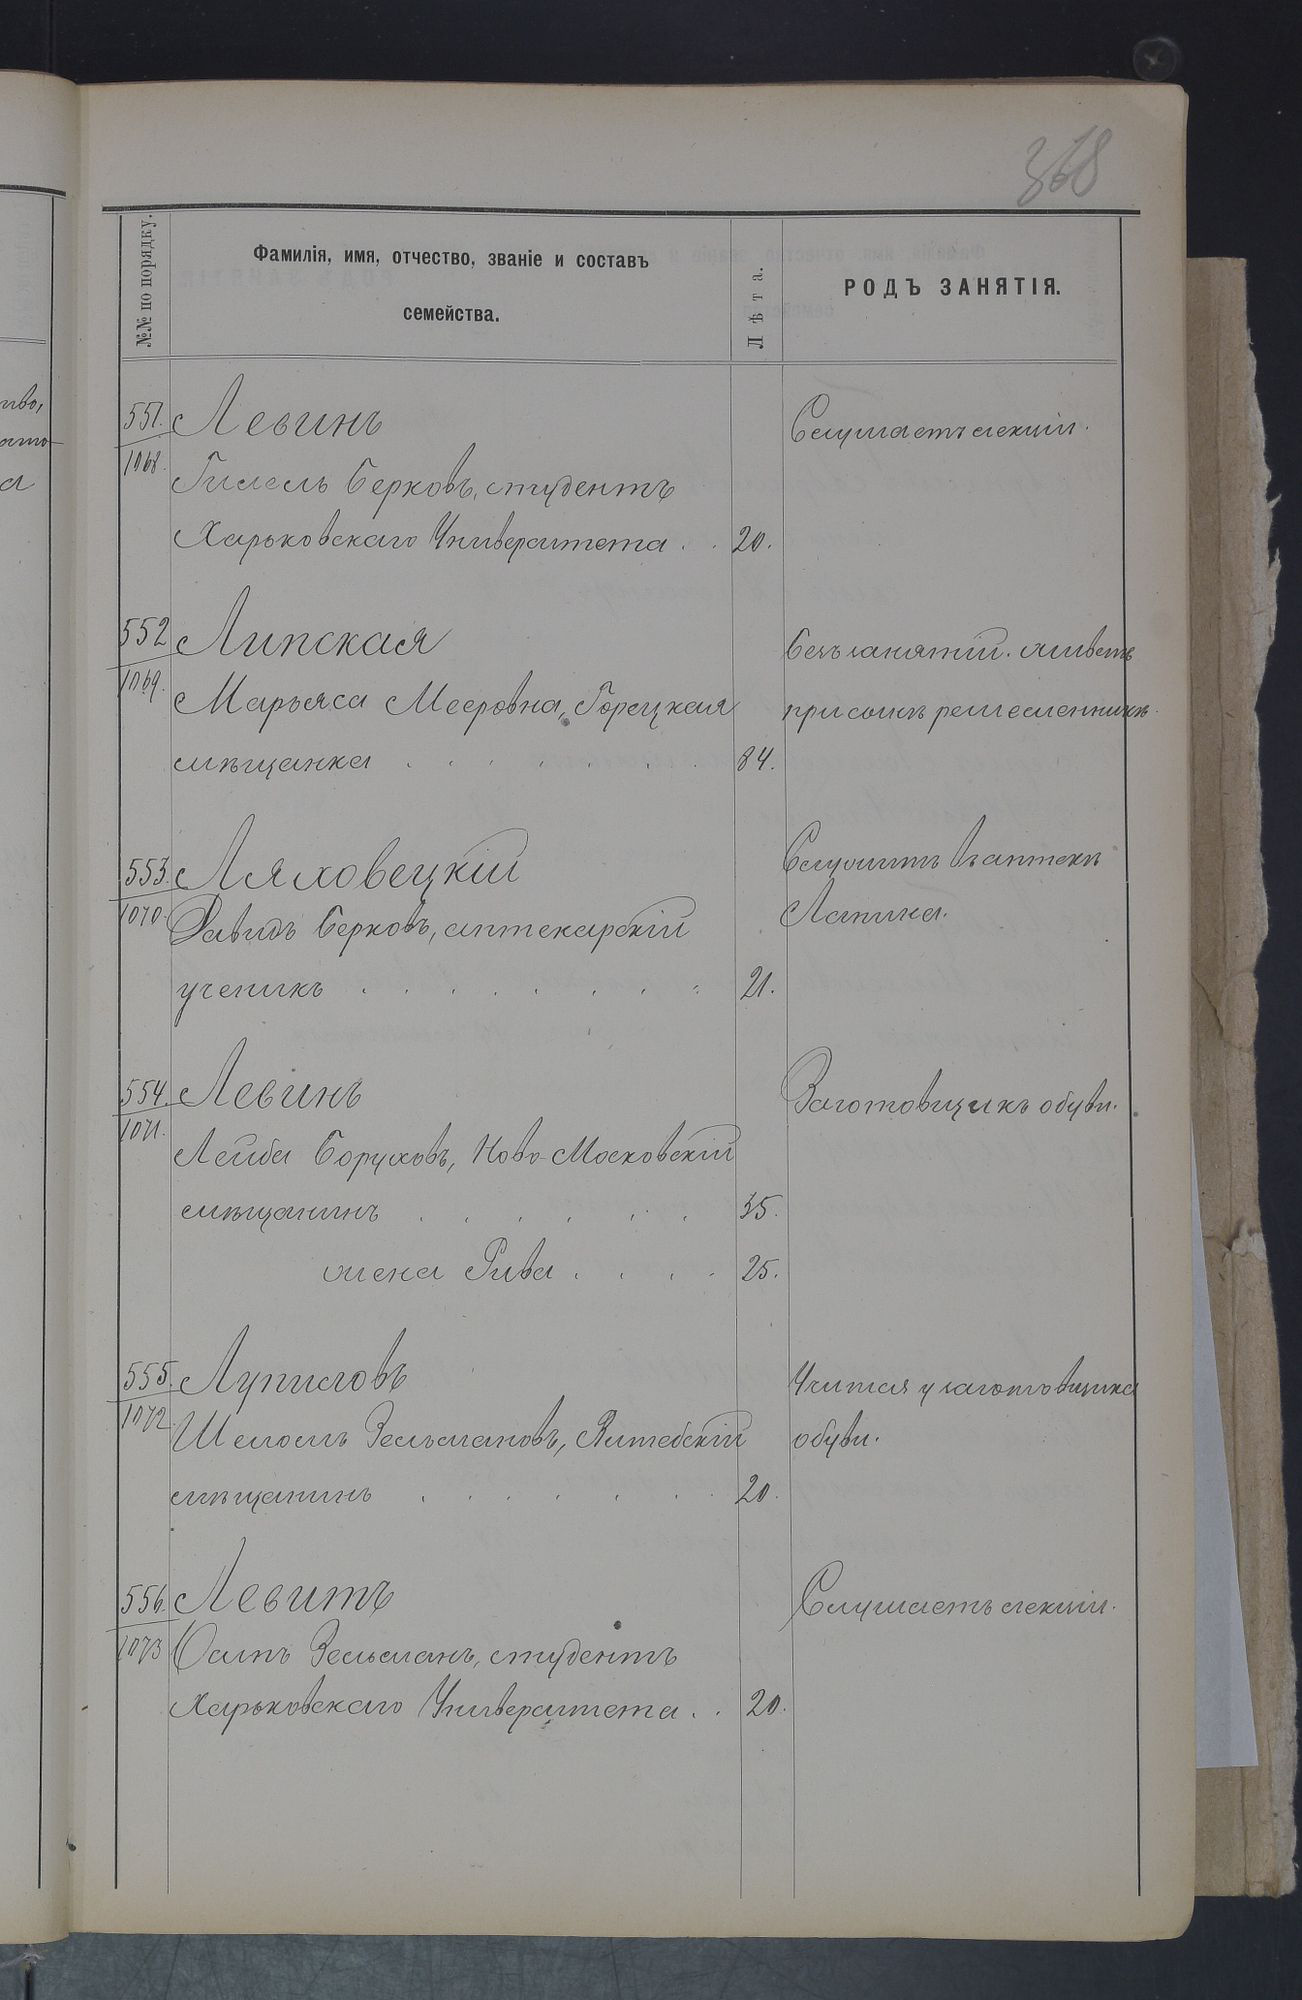 368
№№ по порядку.
Фамилія, имя, отчество, званіе и составъ
семейства.
Лѣта.
РОДЪ ЗАНЯТІЯ.
551. Левинъ
Слушаетъ лекціи.
1068. Гилель Берковъ, студентъ
Харьковскаго Университета . . 20.
552 Липская
Безъ занятій. живетъ
1069. Марьяса Мееровна, Горецкая
при сынѣ ремесленникѣ.
мѣщанка . . . . . . . 84.
553. Ляховецкій
Служитъ въ аптекѣ
1070. Давидъ Берковъ, аптекарскій
Лапина.
ученикъ . . . . . . . . 21.
554. Левинъ
Заготовщикъ обуви.
1071. Лейба Боруховъ, Ново-Московскій
мѣщанинъ . . . . . . 35.
жена Рива . . . . 25.
555. Лупиловъ
Учится у заготовщика
1072. Шеломъ Зельмановъ, Витебскій
обуви.
мѣщанинъ . . . . . . 20.
556. Левитъ
Слушаетъ лекціи.
1073 Осипъ Зельманъ, студентъ
Харьковскаго Университета . . 20.